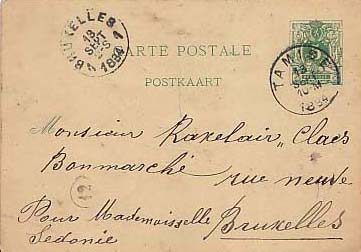 BRUXELLES 1
18
SEPT
5-S
1884
CARTE POSTALE
POSTKAART
TAMISE
18
10-M
1884
Monsieur Raxelair, Claes
Bonmarché rue neuve
12
Pour Mademoisselle Bruxelles
Sedonie